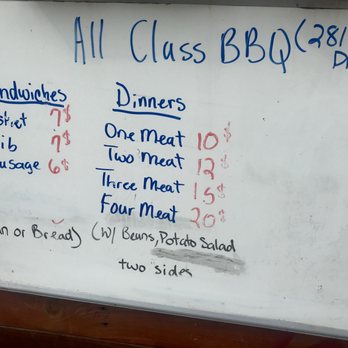 All Class BBQ (281
ndwiches
sket 7$
ib 7$
usage 6$
n or Bread)
Dinners
One Meat 10$
Two Meat 12$
Three Meat 15$
Four Meat 20$
(w/ Beans, Potato Salad
two sides